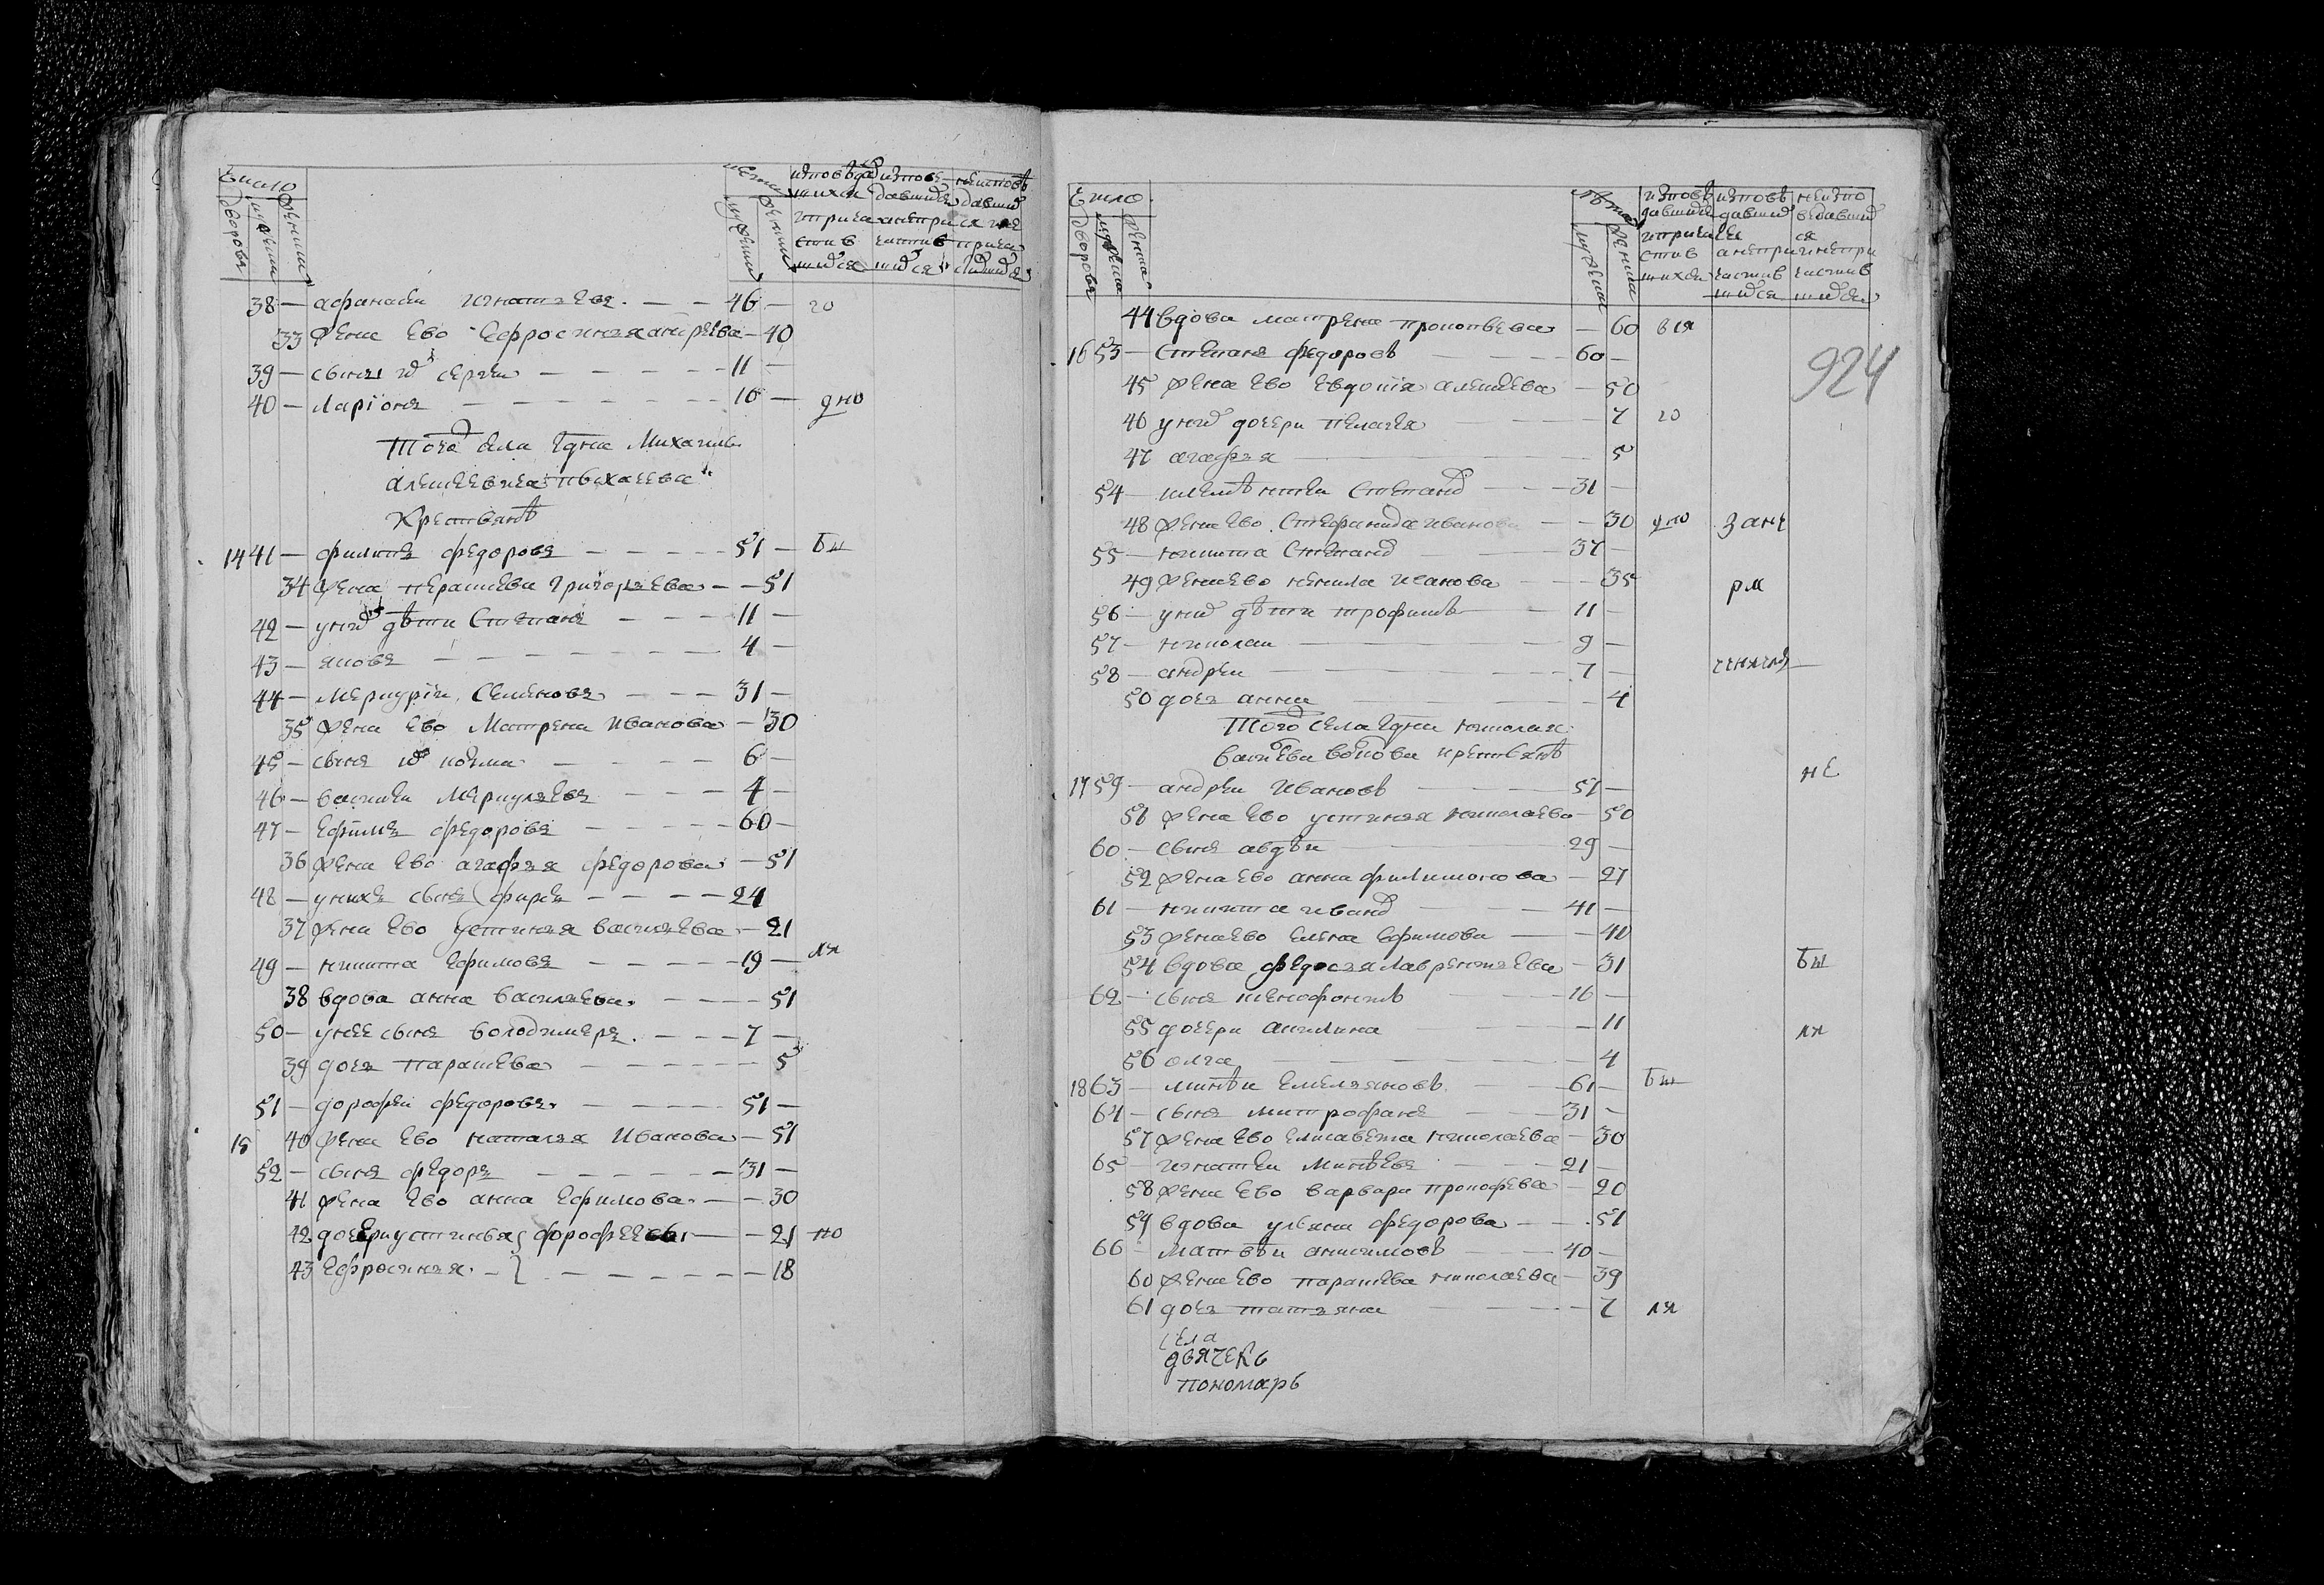 Число
дворовъ
мужеска
женска
лета
мужеска
женска
исповедав
шихся
и прича
стив
шихся
исповe
давших
а непри
частив
шихся
неиспове
давших
ся и не
прича
стившихся
38 — афанасеи игнатьевъ — 46 — го
33 жена ево ефросинья андреева — 40
39 — сынъ их сергеи — 11 —
40 — ларiонъ — 10 — дно
того села гдна михаила
алексеевича
крестьянѣ
14 41 — филипъ федоровъ — 51 — бы
34 жена перасковя григорьева — 51
42 — у них дѣти степанъ — 11 —
43 — яковъ — 4 —
44 — меркурiи семеновъ — 31 —
35 жена ево матрена иванова — 30
45 — сынъ их козма — 6 —
46 — василеи меркульевъ — 4 —
47 — ефимъ федоровъ — 60 —
36 жена ево агафья федорова — 51
48 — у нихъ сынъ фирсъ — 24
37 жена ево устинья васильева — 21
49 — никита ефимовъ — 19 — ля
38 вдова анна васильева — 51
50 — у нее сынъ володимеръ — 7 —
39 дочь парасковя — 5
51 — дорофеи федоровъ — 51 —
15 40 жена ево наталья иванова — 51
52 — сынъ федоръ — 31 —
41 жена ево анна ефимова — 30
42 дочери устинья дорофеевы — 21 по
43 ефросинья — 18
Число
дворовъ
мужеска
женска
лета
мужеска
женска
исповѣ
давшихся
и прича
стив
шихся
исповѣ
давших
ся
а непри
частив
шихся
неиспо
ведавших
ся
и непри
частив
шихся
924
44 вдова матрена прокопьева — 60 вся
16 53 — степанъ федоровъ — 60 —
45 жена ево евдокiя алексеева — 50
46 у них дочери пелагея — 7 го
47 агафья — 5
54 — климентеи степанов — 31 —
48 жена ево стефанида иванова — 30 дно зане
55 — никита степанов — 37 —
49 жена ево ненила иванова — 35 рж
56 — у них дѣти трофимъ — 11 —
57 — николаи — 9 —
58 — андреи — 7 —
50 дочь анна — 4
того села гдна николая
крестьянѣ
17 59 — андреи ивановъ — 51 — не
51 жена ево устинья николаева — 50
60 — сынъ авдѣи — 29 —
52 жена ево анна филимонова — 27
61 — никита иванов — 41 —
53 жена ево елена ефимова — 40
54 вдова федосья лаврентьева — 31 бы
62 — сынъ ксенофонтъ — 16 —
55 дочери акилина — 11 ля
56 олга — 4
18 63 — минѣи емельяновъ — 61 — бы
64 — сынъ митрофанъ — 31 —
57 жена ево елисавета николаева — 30
65 — игнатеи минѣевъ — 21 —
58 жена ево варвара прокофева — 20
59 вдова ульяна федорова — 51
66 — матвѣи анисимовъ — 40 —
60 жена ево парасковя николаева — 39
61 дочь татьяна — 7 ля
села
дьячекъ
пономарь